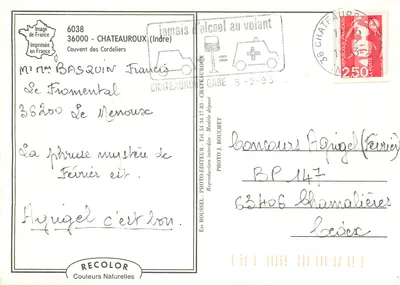 Image
de France
Imprimée
en France
6038
36000 - CHATEAUROUX (Indre)
Couvent des Cordeliers
Mr Mme BASQUIN Francis
Le Fromental
36200 Le Menoux
La phrase mystère de
Février est.
Ayrigel c'est bon.
RECOLOR
Couleurs Naturelles
Ets ROUSSEL - PHOTO-EDITEUR - CHATEAUROUX
Reproduction interdite - Modèle déposé
PHOTO J. BOUCHET
jamais d'alcool au volant
CHATEAUROUX GARE 5-2-93
36 CHATEAUROUX
2,50
Concours Ayrigel (Février)
BP 147
63406 Chamalières
Cédex